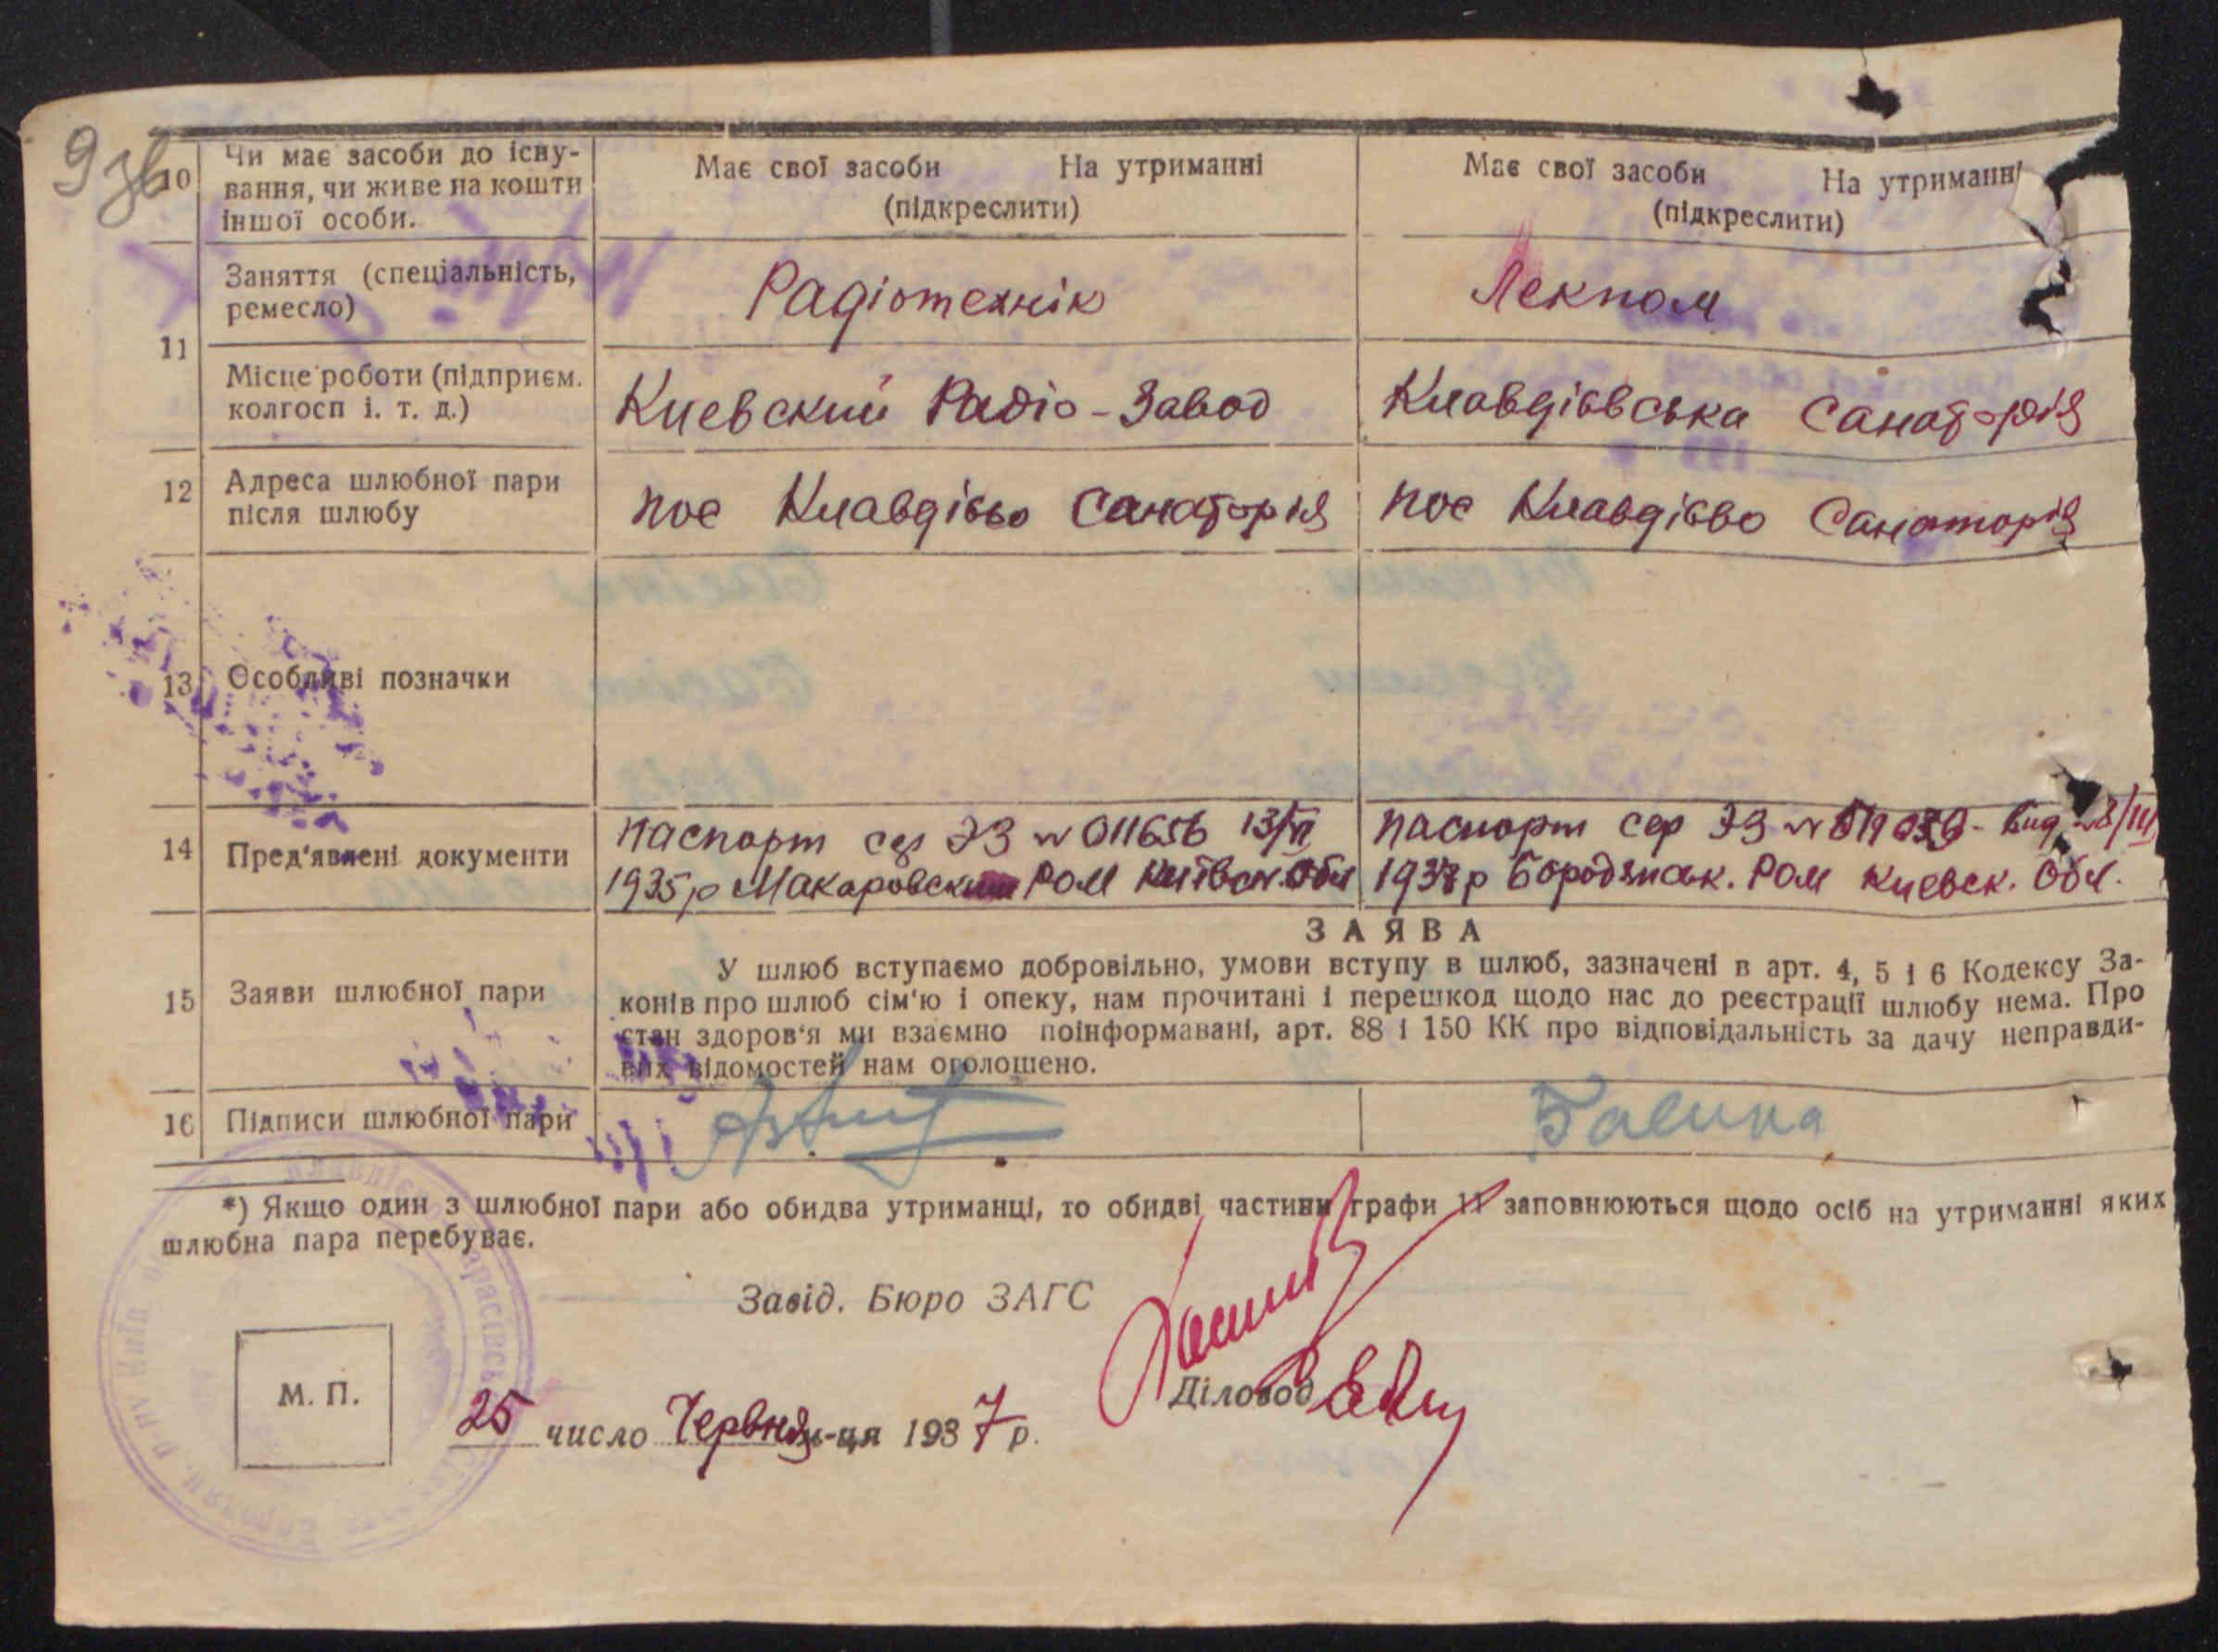 9 зв
10 Чи має засоби до існу-
вання, чи живе на кошти
іншої особи.
Має свої засоби На утриманні
(підкреслити)
Має свої засоби На утриманні
(підкреслити)
11
Заняття (спеціальність,
ремесло)
Радіотехнік
Лекпом
Місце роботи (підприєм.
колгосп і. т. д.)
Киевский Радіо-Завод
Клавдіївська Санаторія
12 Адреса шлюбної пари
після шлюбу
пос Клавдієво Санаторія
пос Клавдієво Санаторія
13 Особливі позначки
14 Пред'явлені документи
паспорт сер ЭЗ № 011656 13/VI
1935 р Макаровский РОМ Київск. Обл
паспорт сер ЭЗ № 519039 - вид 8/III
1937 р Бородянск. РОМ Киевск. Обл.
15 Заяви шлюбної пари
ЗАЯВА
У шлюб вступаємо добровільно, умови вступу в шлюб, зазначені в арт. 4, 5 і 6 Кодексу За-
конів про шлюб сім'ю і опеку, нам прочитані і перешкод щодо нас до реєстрації шлюбу нема. Про
стан здоров'я ми взаємно поінформавані, арт. 88 і 150 КК про відповідальність за дачу неправди-
вих відомостей нам оголошено.
16 Підписи шлюбної пари
Галина
*) Якщо один з шлюбної пари або обидва утриманці, то обидві частини графи 11 заповнюються щодо осіб на утриманні яких
шлюбна пара перебуває.
Завід. Бюро ЗАГС
Діловод
М. П.
25 число Червня м-ця 1937 р.